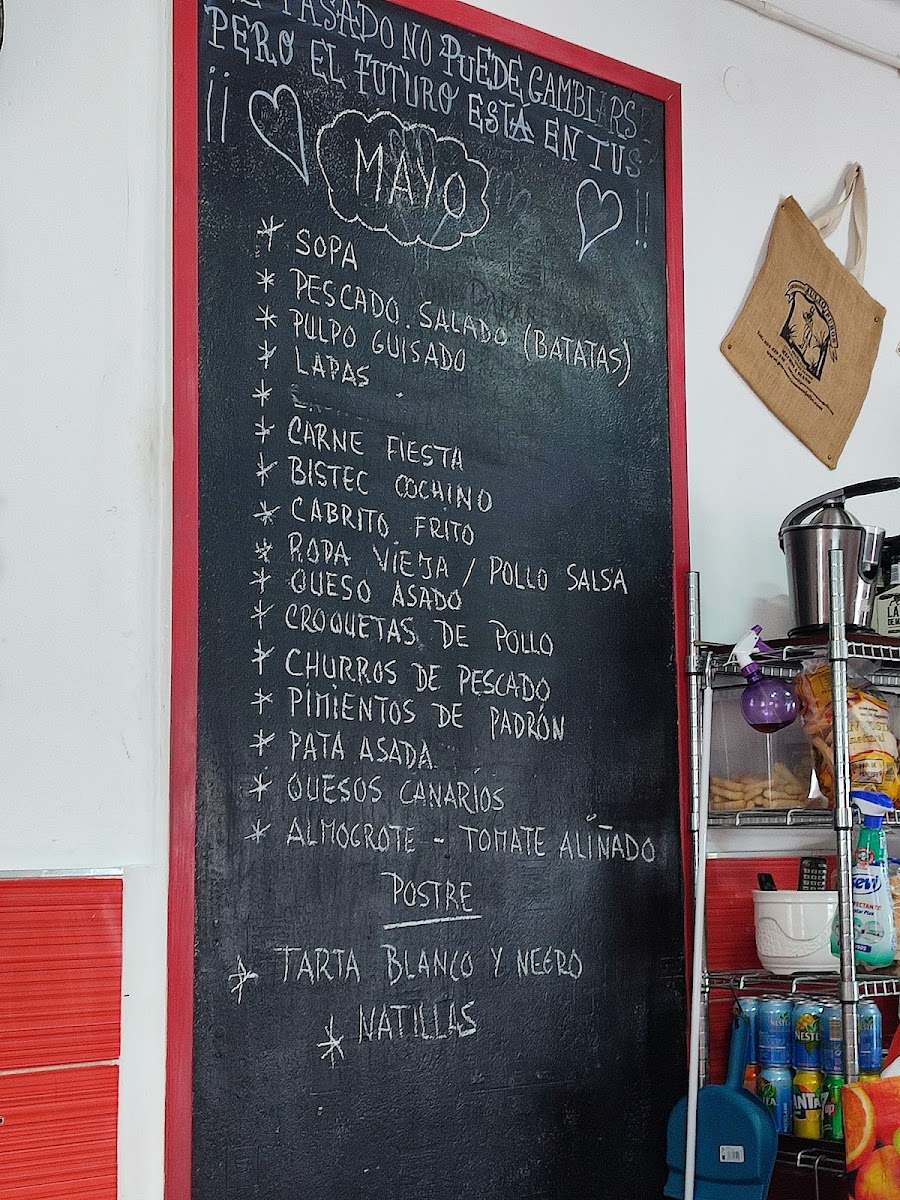 PASADO NO PUEDE GAMBIARS
PERO EL FUTURO ESTÁ EN TUS
¡¡ MAYO !!
* SOPA
* PESCADO SALADO (BATATAS)
* PULPO GUISADO
* LAPAS
*
* CARNE FIESTA
* BISTEC COCHINO
* CABRITO FRITO
* ROPA VIEJA / POLLO SALSA
* QUESO ASADO
* CROQUETAS DE POLLO
* CHURROS DE PESCADO
* PIMIENTOS DE PADRÓN
* PATA ASADA
* QUESOS CANARIOS
* ALMOGROTE - TOMATE ALIÑADO
POSTRE
* TARTA BLANCO Y NEGRO
* NATILLAS